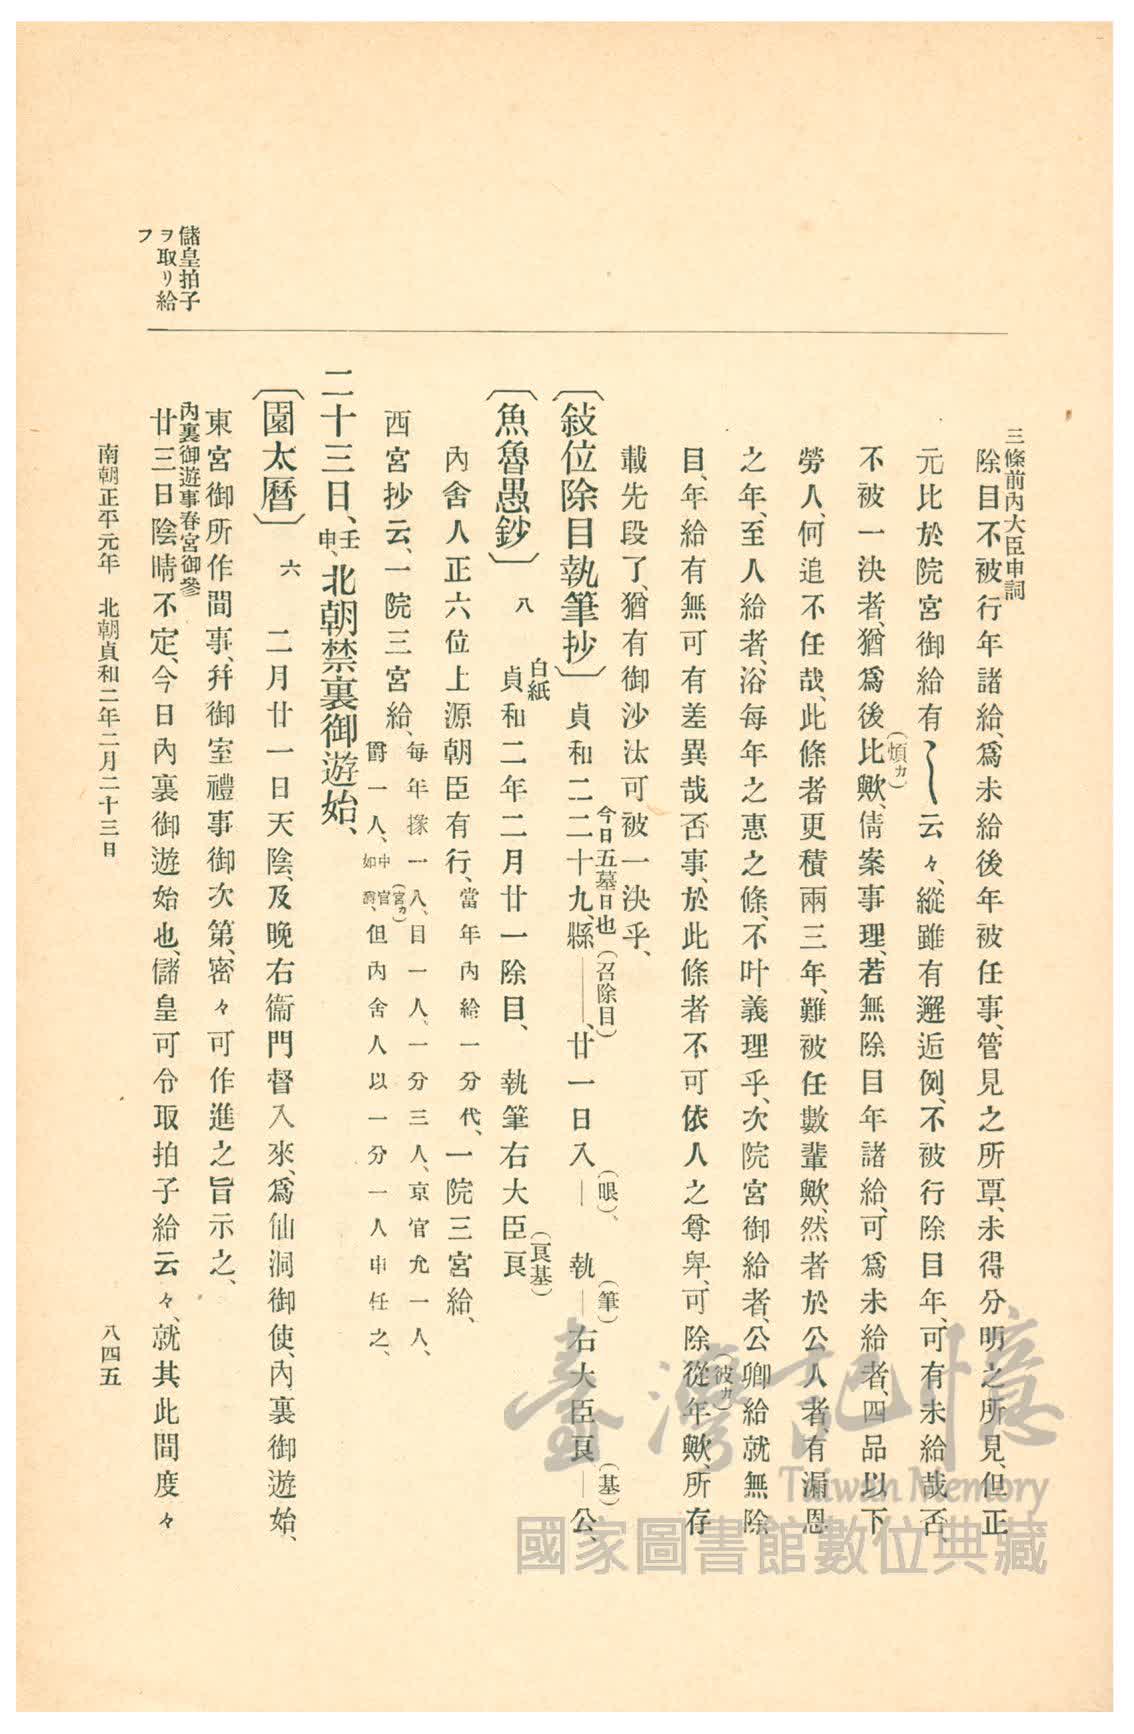 儲皇拍子
ヲ取リ給
フ
三條前內大臣申詞
除目不被行年諸給、爲未給後年被任事、管見之所覃、未得分明之所見、但正
元比於院宮御給有〳〵云々、縱雖有邂逅例、不被行除目年、可有未給哉否、
不被一決者、猶爲後比歟、倩案事理、若無除目年諸給、可爲未給者、四品以下
(煩カ)
勞人、何追不任哉、此條者更積兩三年、難被任數輩歟、然者於公人者、有漏恩
之年、至人給者、浴每年之惠之條、不叶義理乎、次院宮御給者、公卿給就無除
(彼カ)
目、年給有無可有差異哉否事、於此條者不可依人之尊卑、可除從年歟、所存
載先段了、猶有御沙汰可被一決乎、
〔敍位除目執筆抄〕 貞和二二十九、縣――、廿一日入― 執―右大臣良―公、
今日五墓日也(召除目) (眼)、 (筆) (基)
〔魚魯愚鈔〕 八 白紙 貞和二年二月廿一除目、 執筆右大臣良(良基)
內舍人正六位上源朝臣有行、當年內給一分代、一院三宮給、
西宮抄云、一院三宮給、每年掾一人、目一人、一分三人、京官允一人、
爵一人、如中官爵、(宮カ)但內舍人以一分一人申任之、
二十三日、壬申、北朝禁裏御遊始、
〔園太曆〕 六 二月廿一日天陰、及晚右衞門督入來、爲仙洞御使、內裏御遊始、
東宮御所作間事、幷御室禮事御次第、密々可作進之旨示之、
內裏御遊事春宮御參
廿三日陰晴不定、今日內裏御遊始也、儲皇可令取拍子給云々、就其此間度々
南朝正平元年 北朝貞和二年二月二十三日
八四五
臺灣記憶
Taiwan Memory
國家圖書館數位典藏